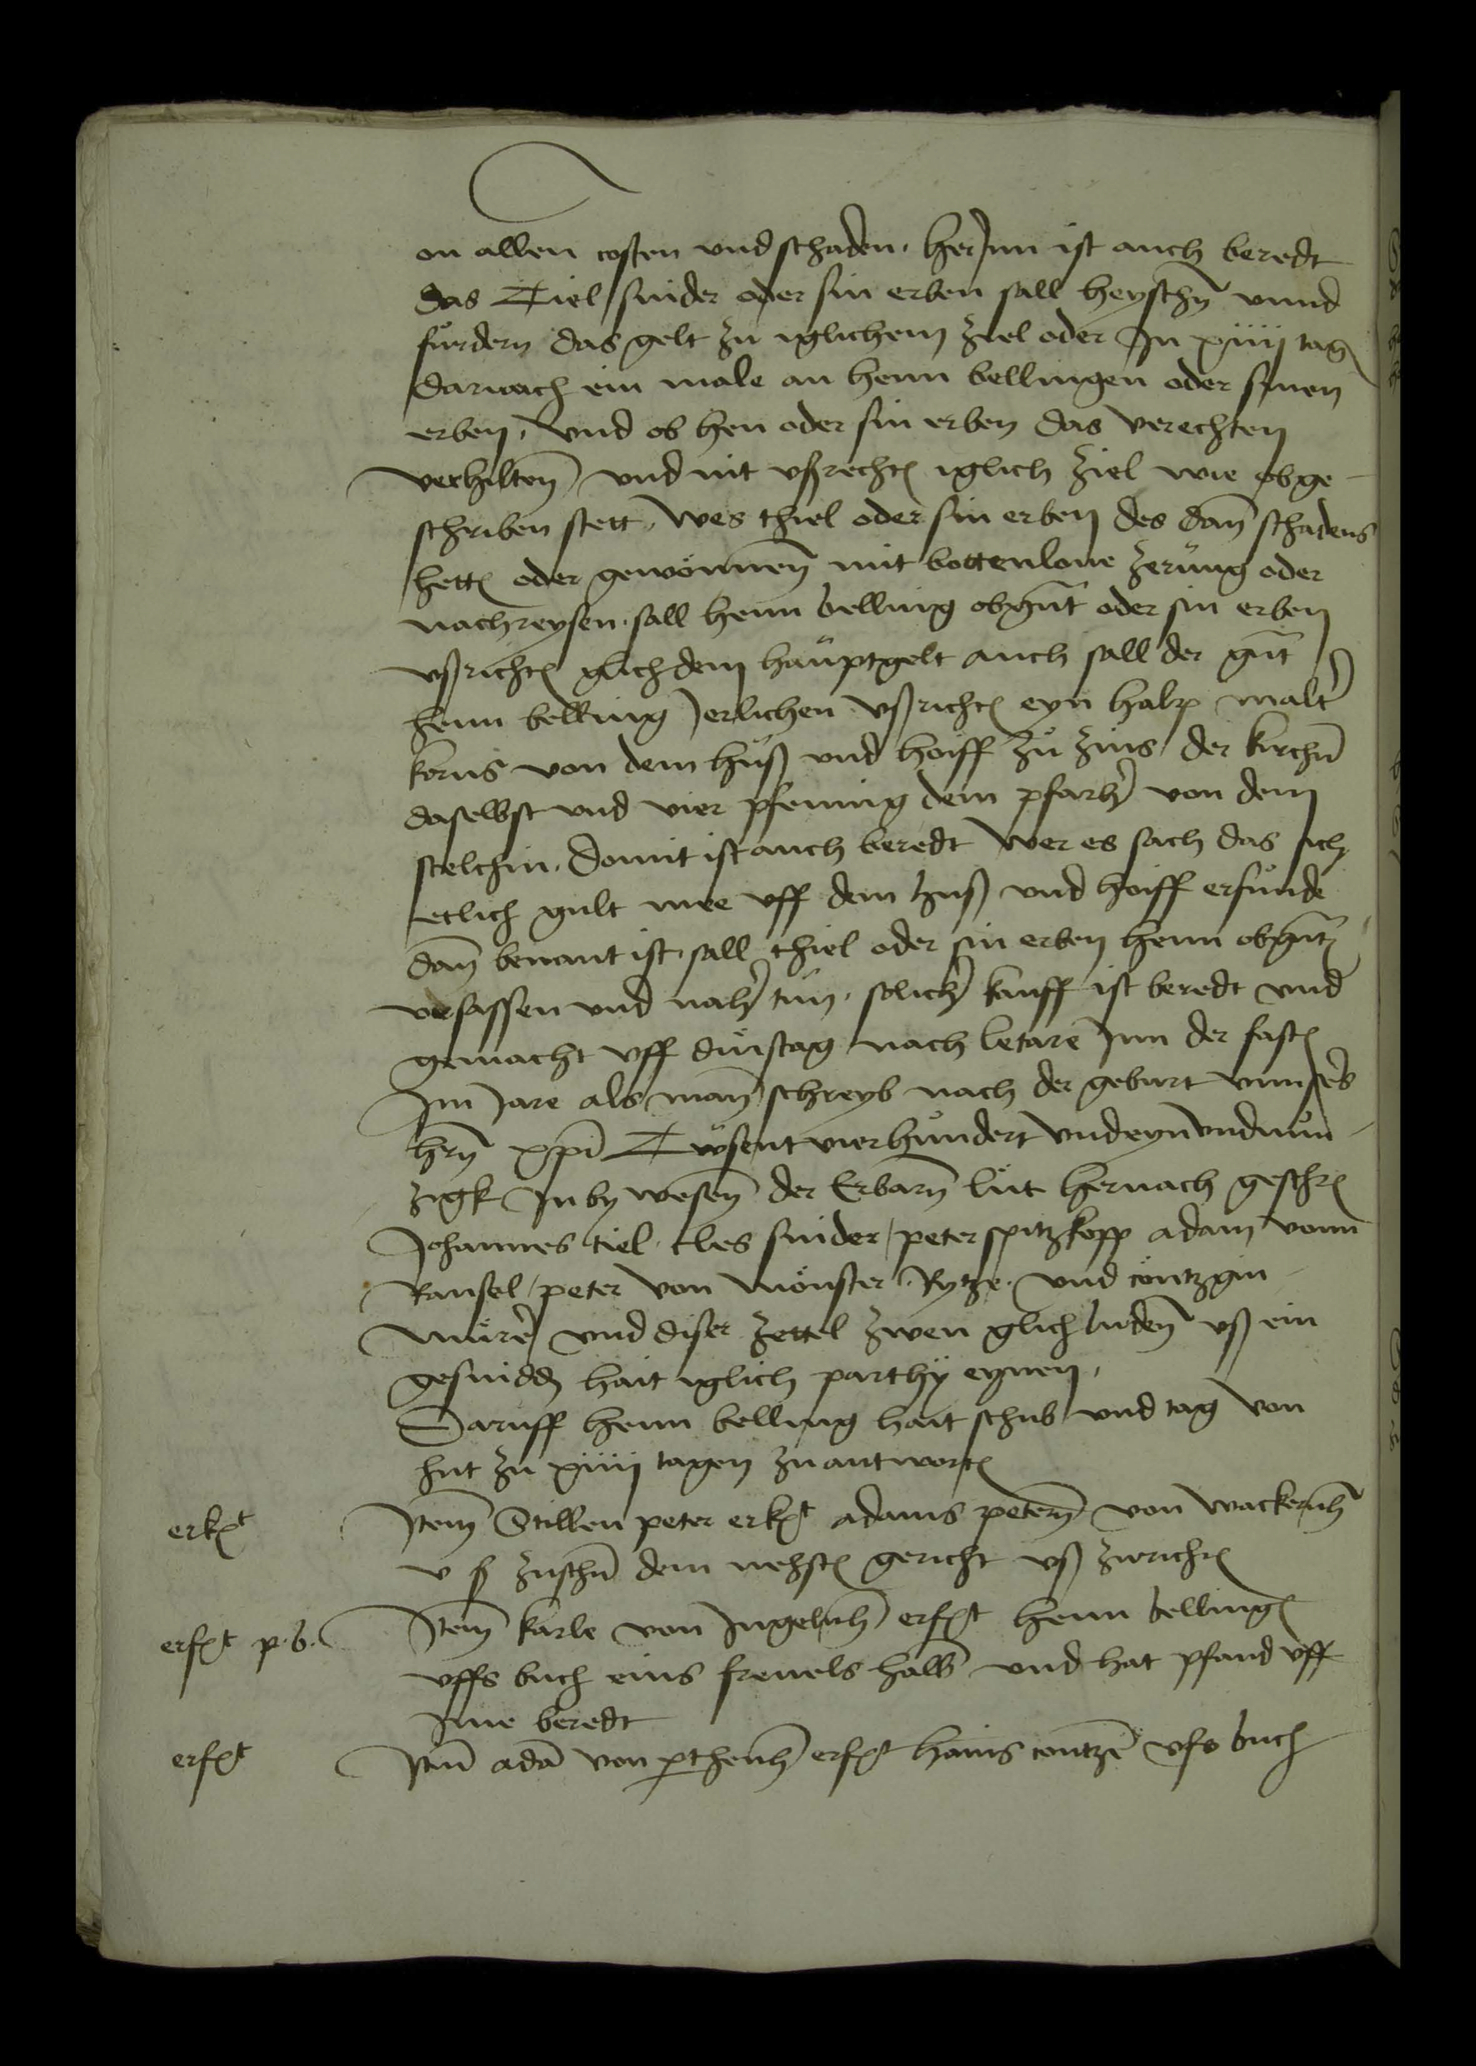 on allen costen vnd schaden. herJnn ist auch beredt
das Tiel snider oder sin erben sall heyschn̄ vnnd
fůrdern das gelt zu iglichem ziel oder Jn xiiij tag
darnach ein male an henn bellingen oder sinen
erben, vnd ob hen oder sin erben das verechten
verhilten vnd nit vßrechtē iglich ziel wie obge-
schriben stett, wes thiel oder sin erben des dan̄ schadens
hettē oder gewönnen mit bottenlone zerůng oder
nachreysen. sall henn belling obgnt̄ oder sin erben
vßrichtē glich dem haůptgelt auch sall der gnt̄
henn belling Jerlichen vßrichtē eyn halp malt'
korns von dem hůß vnd hoiff zů zins der kirchn̄
daselbst vnd vier pfennig dem pfarh' von dem
stelchin. Domit ist auch beredt wer es sach das sich
etlich gult mee vff dem huß vnd hoiff erfunde
dan̄ benant ist, sall thiel oder sin erben henn obgnt̄
versassen vnd nah' tůn. solich' kauff ist beredt vnd
gemacht vff dinstag nach letare Jnn der fastē
Jm Jare als man̄ schreyb nach der geburt vnns's
hrn̄ xp̄i Tůsent vierhůndert vnd eyn vnd nůn-
zigk Jn by wesen̄ der Erbarn̄ lůt hernach geschrē
Johannes tiel. cles snider, peter spitzkopp adam vonn
Ransel, peter von mönster. Rytze. vnd cöntzgin
můrer vnd diser zettel zwen glich luden̄ vß ein
gesnidd hait iglich parthÿ eynen,
Daruff henn belling hait schub vnd tag von
hut zu xiiij tagen zu antwortē
erkēt Jtem̄ Stillen peter erkēt adams petern̄ von wackernh'
v ß zuschn̄ dem nehstē gericht vß zurichtē
erfēt p. b. Jtem̄ karle von Jngelnh' erfēt henn bellingē
vffs buch eins freuels halb̄ vnd hat pfand vff
Jme beredt
erfēt Jtm̄ adā von erfēt hains contzē vfs buch